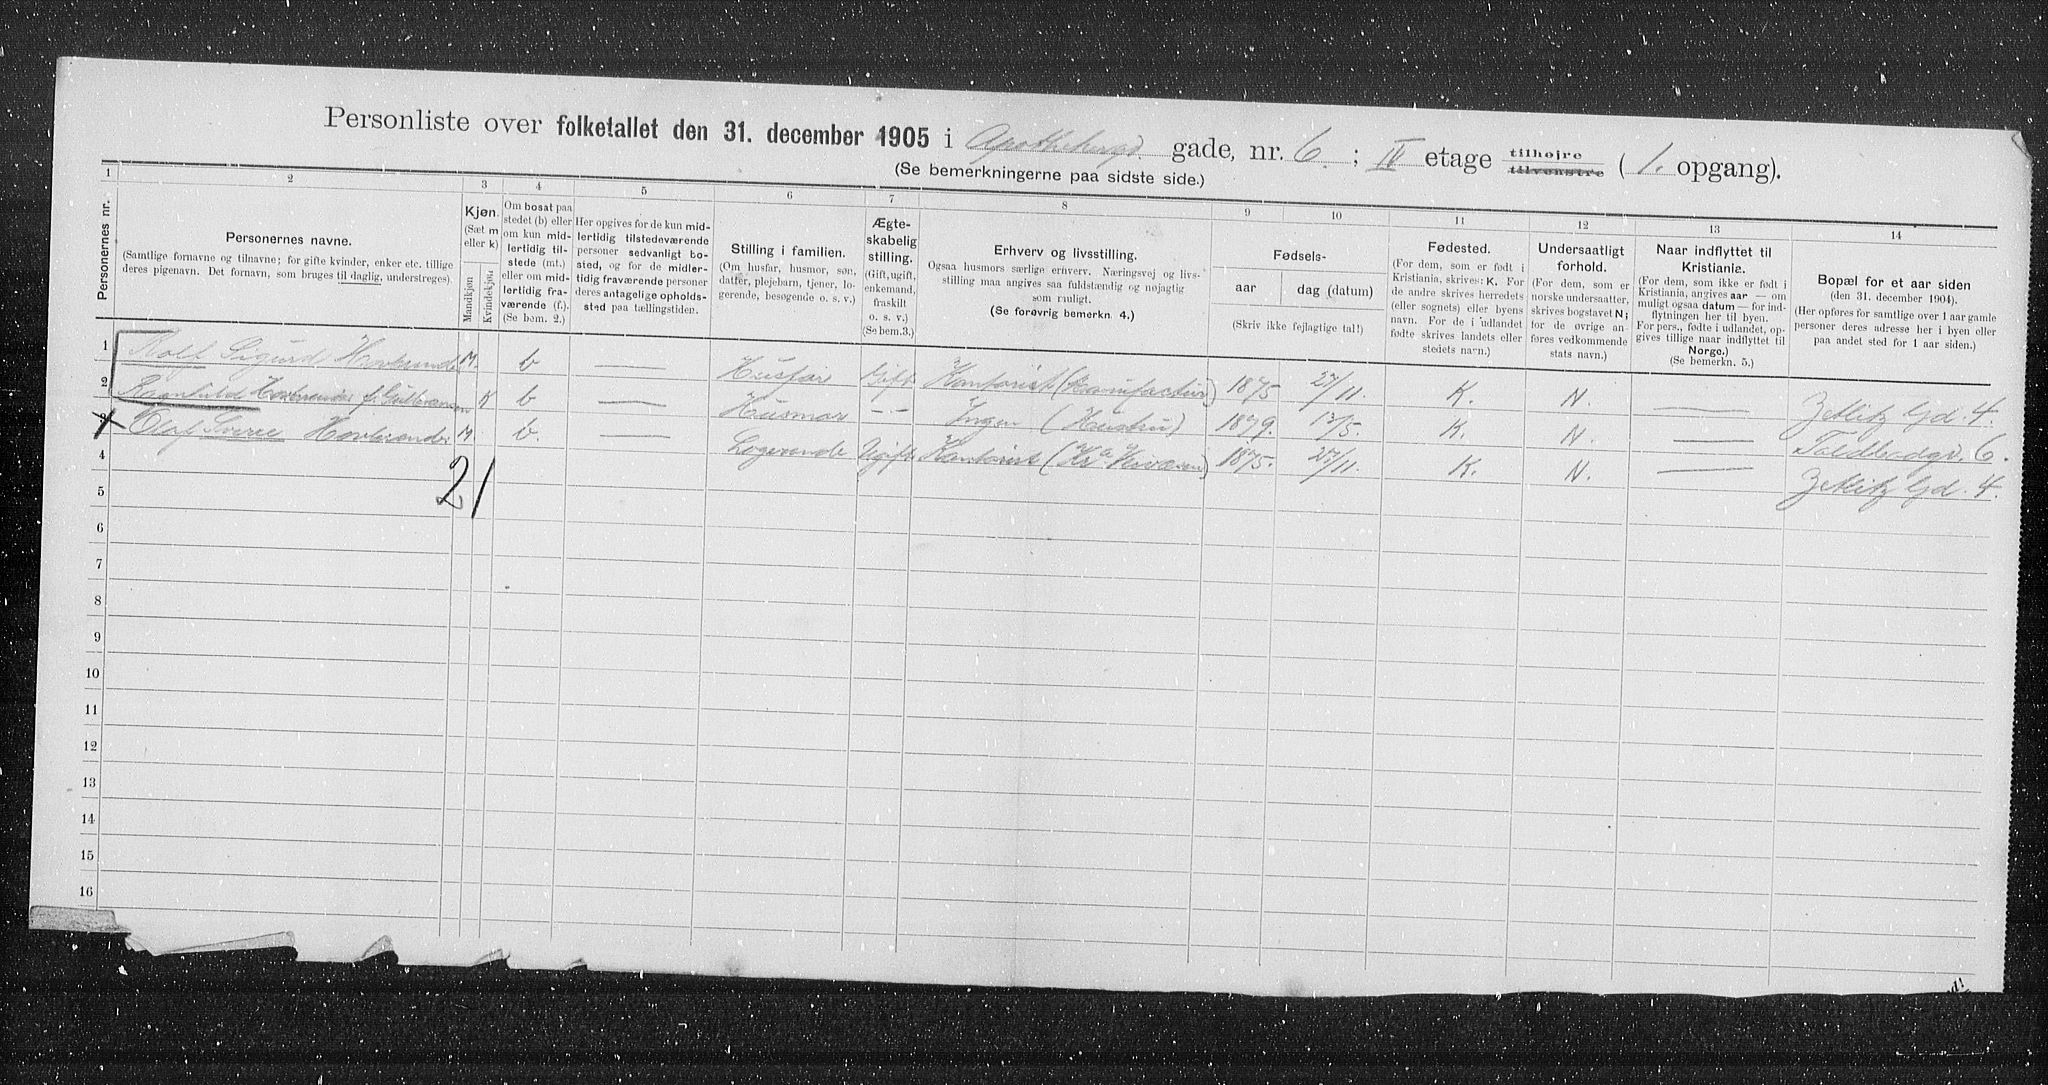 Personliste over folketallet den 31. december 1905 i Apothekergd. gade, nr. 6. ; IV etage tilhøjre tilvenstre ( 1. opgang).
(Se bemerkningerne paa sidste side.)
1 2 3 4 5 6 7 8 9 10 11 12 13 14
Personernes nr.
Personernes navne.
(Samtlige fornavne og tilnavne; for gifte kvinder, enker etc. tillige
deres pigenavn. Det fornavn, som bruges til daglig, understreges).
Kjøn.
(Sæt m
eller k)
Mandkjøn
Kvindekjøn
Om bosat paa
stedet (b) eller
om kun mid-
lertidig til-
stede (mt.)
eller om mid-
lertidig fra-
værende (f.).
(Se bem. 2.)
Her opgives for de kun mid-
lertidig tilstedeværende
personer sedvanligt bo-
sted, og for de midler-
tidig fraværende personer
deres antagelige opholds-
sted paa tællingstiden.
Stilling i familien.
(Om husfar, husmor, søn,
datter, plejebarn, tjener, lo-
gerende, besøgende o. s. v.)
Ægte-
skabelig
stilling.
(Gift, ugift,
enkemand,
fraskilt
o. s. v.)
(Se bem.3.)
Erhverv og livsstilling.
Ogsaa husmors særlige erhverv. Næringsvej og livs-
stilling maa angives saa fuldstændig og nøjagtig
som muligt.
(Se forøvrig bemerkn. 4.)
Fødsels-
aar
dag (datum)
(Skriv ikke fejlagtige tal!)
Fødested.
(For dem, som er født i
Kristiania, skrives: K. For
de andre skrives herredets
(eller sognets) eller byens
navn. For de i udlandet
fødte skrives landets eller
stedets navn.)
Undersaatligt
forhold.
(For dem, som er
norske undersaatter,
skrives bogstavet N;
for de øvrige an-
føres vedkommende
stats navn.)
Naar indflyttet til
Kristiania.
(For dem, som ikke er født i
Kristiania, angives aar — om
muligt ogsaa datum — for ind-
flytningen her til byen.
For pers., fødte i udlandet, op-
gives tillige naar indflyttet til
Norge.)
(Se bemerkn. 5.)
Bopæl for et aar siden
(den 31. december 1904).
(Her opføres for samtlige over 1 aar gamle
personer deres adresse her i byen eller
paa andet sted for 1 aar siden.)
1 Rolf Sigurd M. b — Husfar Gift Kontorist (Manufactur) 1875 27/11. K. N. — Zetlitz Gd. 4.
2 Ragnhild f. K b — Husmor -"- Ingen (Hustru) 1879. K. N. — Toldbodgd. 6.
3 Olaf Sverre M. b. — Logerende Ugift Kontorist 1875. 27/11. K. N. — Zetlitz Gd. 4.
4
21
5
6
7
8
9
10
11
12
13
14
15
16